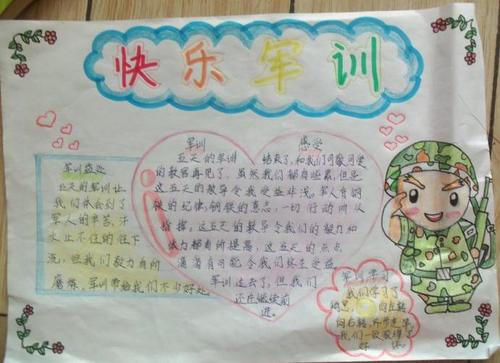 快乐军训
军训益处
五天的军训让
我们体会到了
军人的辛苦,汗
水止不住的往下
流,但我们毅力有所
磨炼,军训带给我们不少好处
军训 感受
五天的军训结束了,和我们可敬可爱
的教官再见了。虽然我们都有些累,但是
这五天的教导令我受益非浅。军人有钢
铁的纪律,钢铁的意志,一切行动听从
指挥,这五天的教导令我们的毅力和
体力都有所提高,这五天的点点
滴滴有可能令我们终生受益
军训过去了,但我们
还应继续前
进。
军训学习
我们学习了
向左转
向右转,齐步走等
我们一致获得了
好